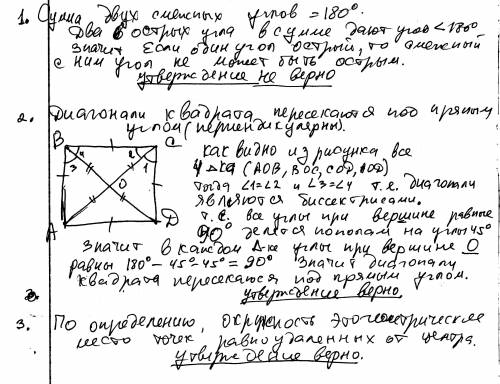 1. Сумма двух смежных углов = 180°.
Два острых угла в сумме дают угол < 180°
значит Если один угол острый, то смежный
с ним угол не может быть острым.
утверждение не верно
2. Диагонали квадрата пересекаются под прямым
углом (перпендикулярны).
B C
4 2
3 1
O
A D
как видно из рисунка все
4 Δка (AOB, BOC, COD, AOD)
тогда ∠1=∠2 и ∠3=∠4 т.е. диагонали
являются биссектрисами.
т.е. все углы при вершине равные
90° делятся пополам на углы 45°
значит в каждом Δ-ке углы при вершине O
равны 180° - 45° - 45° = 90° значит диагонали
квадрата пересекаются под прямым углом.
утверждение верно.
3. По определению, окружность это геометрическое
место точек равноудаленных от центра.
утверждение верно.